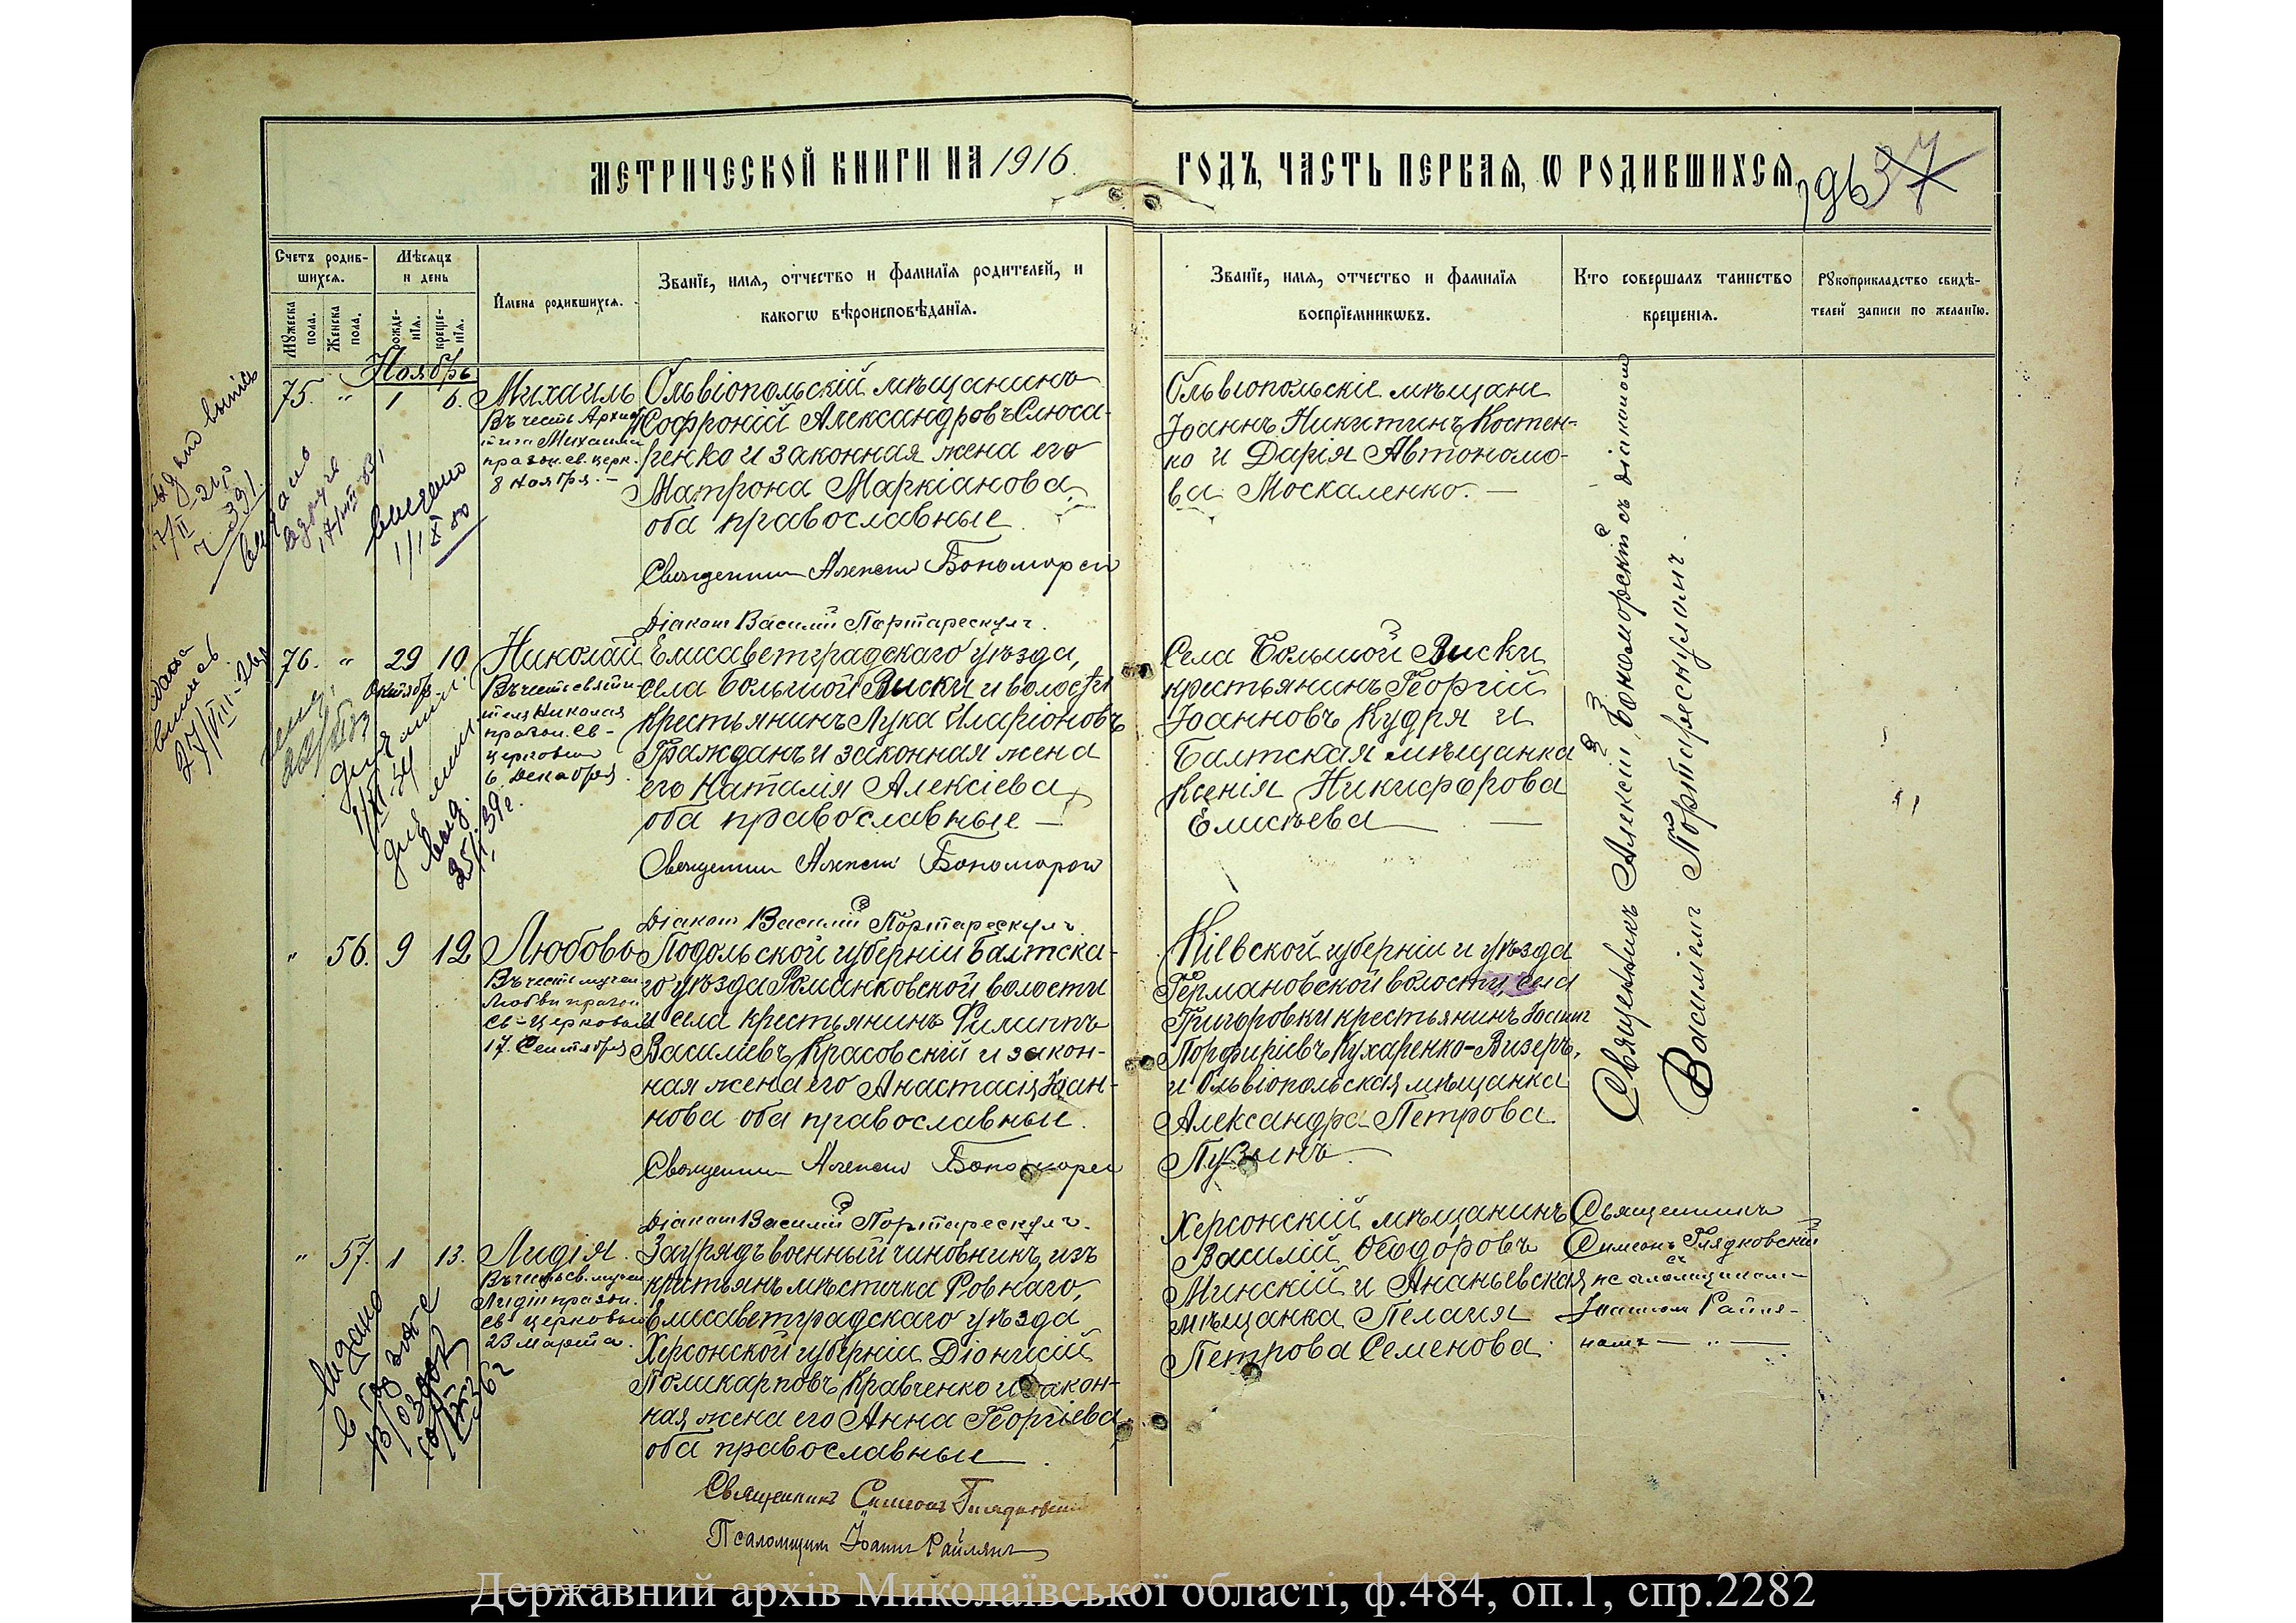 МЕТРИЧЕСКОЙ КНИГИ НА 1916
ГОДЪ, ЧАСТЬ ПЕРВАЯ, Ѡ РОДИВШИХСЯ
196 37
Счетъ родив-
шихся.
Мужеска
пола.
Женска
пола.
Мѣсяцъ
и день
рожде-
нїя.
креще-
нїя.
Имена родившихся.
Званїе, имя, отчество и фамилїя родителей, и
какогѡ вѣроисповѣданїя.
Званїе, имя, отчество и фамилїя
воспрїемникѡвъ.
Кто совершалъ таинство
крещенїя.
Рукоприкладство свидѣ-
телей записи по желанїю.
Ноябрь
75. " 1 6.
Михаилъ
Въ честь Архис
тига Михаила
празн. св. церк.
8 Ноября. —
Ольвіопольскій мѣщанинъ
Софроній Александровъ Слюса-
ренко и законная жена его
Матрона Маркіанова,
оба православные
Священник Алексій Бономорскій
Діаконъ Василій Портарескулъ.
Ольвіопольскіе мѣщане
Іоаннъ Никитинъ Костен-
ко и Дарія Автономо-
ва Москаленко. —
76. " 29 10
Октября
Николай
Въ честь святи
теля Николая
празн. св-
церковью
6. Декабря.
Елисаветградскаго уѣзда,
села Большой Виски и волости
крестьянинъ Лука Иларіоновъ
Гражданъ и законная жена
его Наталія Алексіева,
оба православные —
Священник Алексій Бономорскій
Діаконъ Василій Портарескулъ.
Села Большой Виски
крестьянинъ Георгій
Іоанновъ Кудря и
Балтская мѣщанка
Ксенія Никифорова
Елисѣева —
" 56. 9 12
Любовь
Въ честь мучен
Любви празн
св-церковью
17. Сентября
Подольской губерніи Балтска-
го уѣзда Романковской волости
и села крестьянинъ Филиппъ
Василіевъ Красовскій и закон-
ная жена его Анастасія Іоан-
нова оба православные.
Священник Алексій Бономорскій
Діаконъ Василій Портарескулъ.
Кіевской губерніи и уѣзда
Германовской волости, села
Григоровки крестьянинъ Іосифъ
Порфиріевъ Кухаренко-Визеръ,
и Ольвіопольская мѣщанка
Александра Петрова
Пузынъ —
Священникъ Алексій Бономорскій съ діакономъ
Василіемъ Портарескуломъ.
" 57. 1 13.
Лидія.
Въ честь св. мучен
Лидіи празн.
св- церковью
23 Марта.
Заурядъ военный чиновникъ, изъ
крестьянъ мѣстечка Ровнаго,
Елисаветградскаго уѣзда
Херсонской губерніи Діонисій
Поликарповъ Кравченко и закон-
ная жена его Анна Георгіева,
оба православные
Священникъ Симеонъ Глядковскій
Псаломщик Іоаннъ Райлянъ
Херсонскій мѣщанинъ
Василій Ѳеодоровъ
Минскій и Ананьевская
мѣщанка Пелагія
Петрова Семенова.
Священникъ
Симеонъ Глядковскій
съ
псаломщикомъ
Іоанномъ Райля-
номъ — " —
Державний архів Миколаївської області, ф.484, оп.1, спр.2282